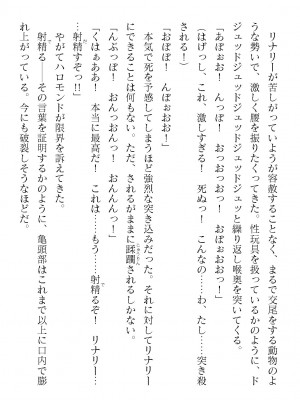 リナリーが苦しがっていようが容赦することなく、まるで交尾をする動物のよ
うな勢いで、激しく腰を振りたくってきた。性玩具を扱っているかのように、ド
ジュッドジュッドジュッドジュッと繰り返し喉奥を突いてくる。
「あぽぉお！　んぽっ！　おっおっおっ！　おぽぉおおっ！」
（はげっし、これ、激しすぎる！　死ぬっ！　こんなの――わ、たし……突き殺
される！）
「おぽぽ！　んぽぉおお！」
本気で死を予感してしまうほど強烈な突き込みだった。それに対してリナリー
にできることは何もない。ただ、されるがままに蹂躙されるしかない。
「んぶっぽ！　おんっおんっ！　おんんんっ！」
「くはぁああ！　本当に最高だ！　これは……もう……射精るぞ！　リナリー
……射精すぞっ!!」
やがてハロモンドが限界を訴えてきた。
射精る――その言葉を証明するかのように、亀頭部はこれまで以上に口内で膨
れ上がっている。今にも破裂しそうなほどだ。